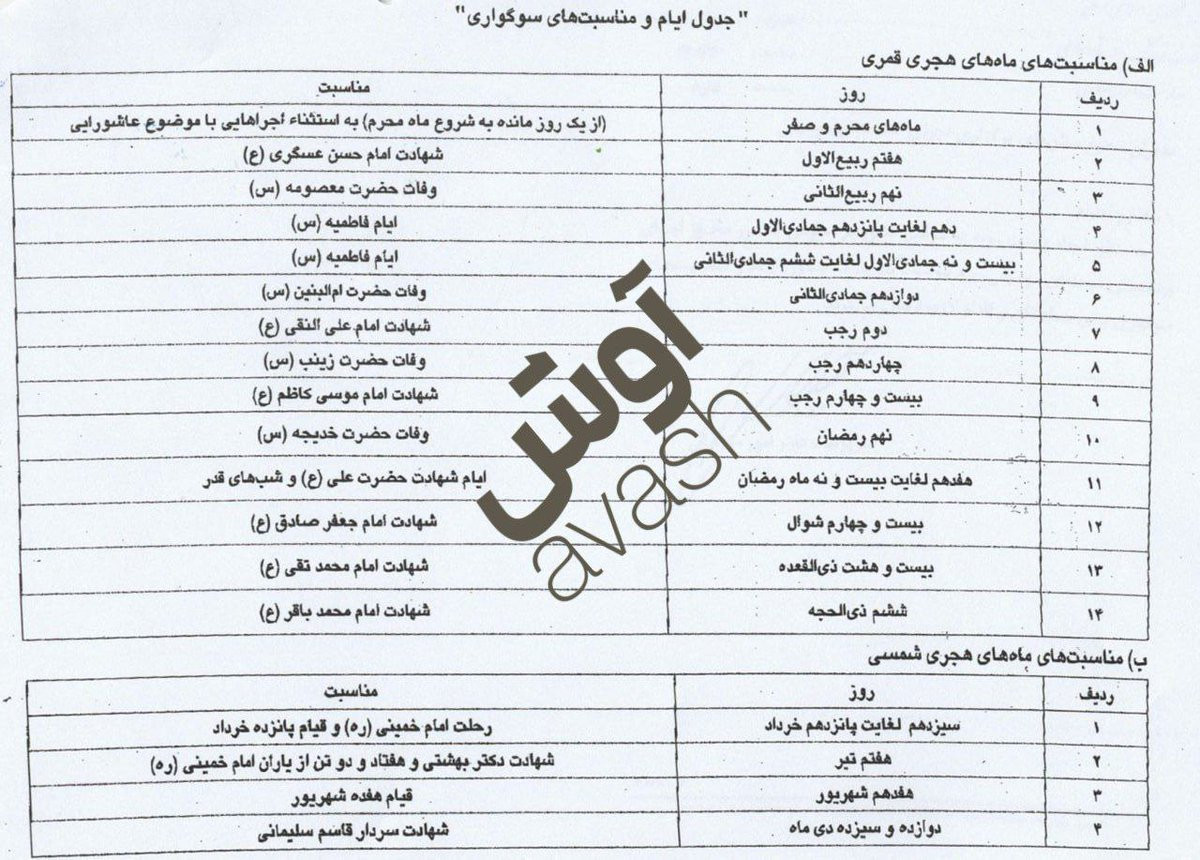 "جدول ایام و مناسبت‌های سوگواری"
الف) مناسبت‌های ماه‌های هجری قمری
ردیف روز مناسبت
۱ ماه‌های محرم و صفر (از یک روز مانده به شروع ماه محرم) به استثناء اجراهایی با موضوع عاشورایی
۲ هفتم ربیع‌الاول شهادت امام حسن عسگری (ع)
۳ نهم ربیع‌الثانی وفات حضرت معصومه (س)
۴ دهم لغایت پانزدهم جمادی‌الاول ایام فاطمیه (س)
۵ بیست و نه جمادی‌الاول لغایت ششم جمادی‌الثانی ایام فاطمیه (س)
۶ دوازدهم جمادی‌الثانی وفات حضرت ام‌البنین (س)
۷ دوم رجب شهادت امام علی النقی (ع)
۸ چهاردهم رجب وفات حضرت زینب (س)
۹ بیست و چهارم رجب شهادت امام موسی کاظم (ع)
۱۰ نهم رمضان وفات حضرت خدیجه (س)
۱۱ هفدهم لغایت بیست و نه ماه رمضان ایام شهادت حضرت علی (ع) و شب‌های قدر
۱۲ بیست و چهارم شوال شهادت امام جعفر صادق (ع)
۱۳ بیست و هشت ذی‌القعده شهادت امام محمد تقی (ع)
۱۴ ششم ذی‌الحجه شهادت امام محمد باقر (ع)
آوش
avash
ب) مناسبت‌های ماه‌های هجری شمسی
ردیف روز مناسبت
۱ سیزدهم لغایت پانزدهم خرداد رحلت امام خمینی (ره) و قیام پانزده خرداد
۲ هفتم تیر شهادت دکتر بهشتی و هفتاد و دو تن از یاران امام خمینی (ره)
۳ هفدهم شهریور قیام هفده شهریور
۴ دوازده و سیزده دی ماه شهادت سردار قاسم سلیمانی